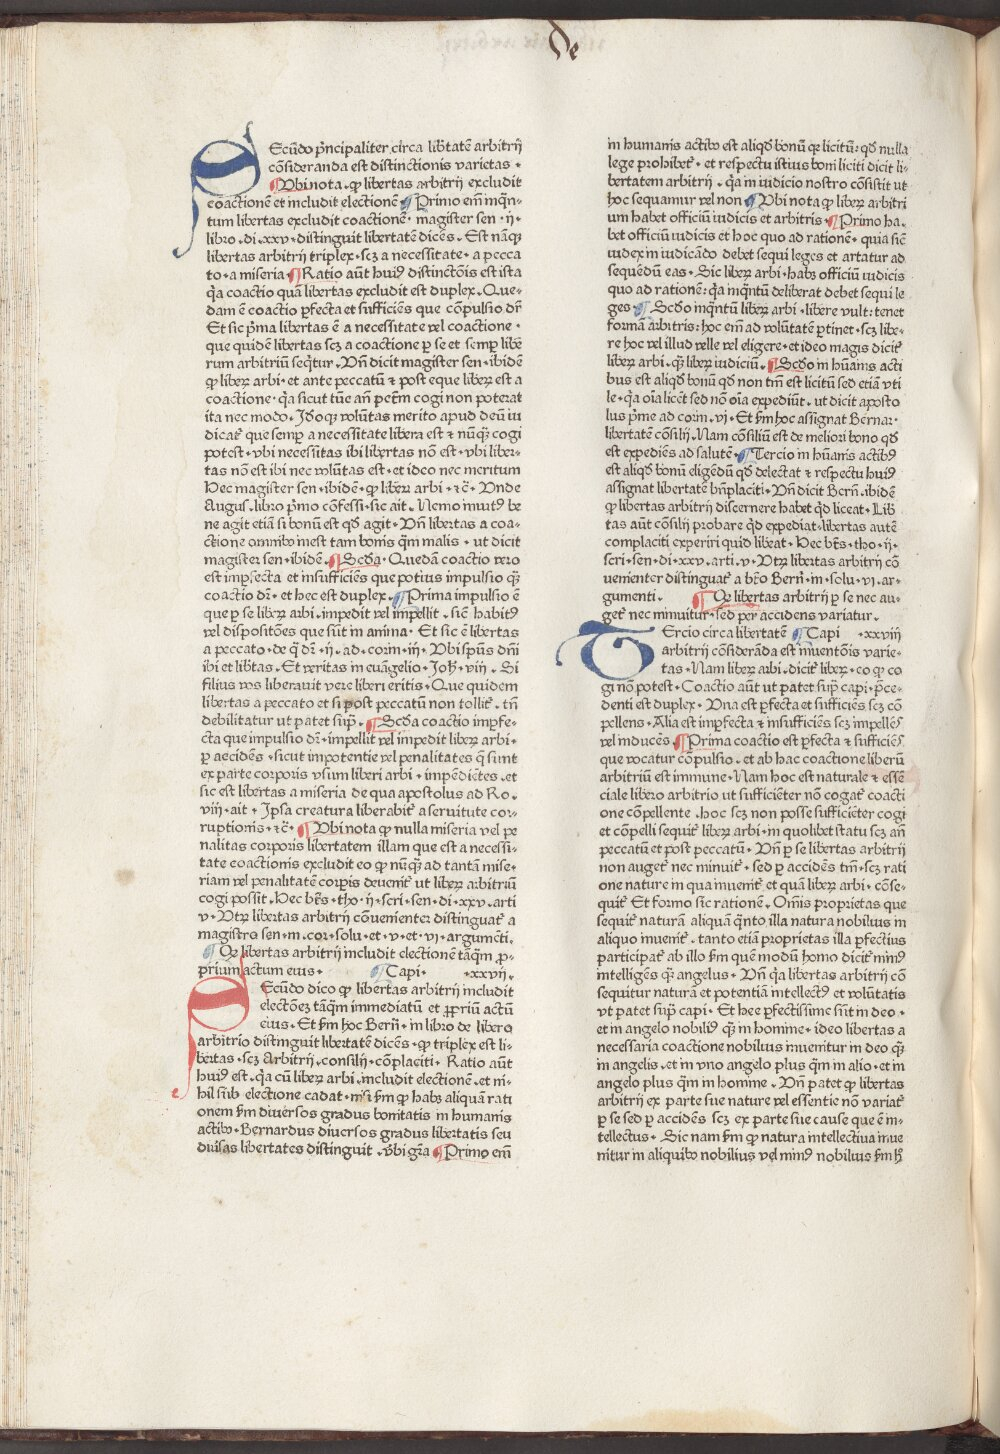 De
Secūdo pncipaliter circa lib̄tatē arbitrij
cōsideranda est distinctionis varietas ·
Vbi nota · ꝙ libertas arbitrij excludit
coactionē et includit electionē Primo em̄ inqn̄-
tum libertas excludit coactionē · magister sen · ij ·
libro · di · xxv · distinguit libertatē dicēs · Est nāqꝫ
libertas arbitrij triplex · scꝫ a necessitate · a pecca
to · a miseria Ratio aūt huiꝰ distinctōis est ista
q̄a coactio quā libertas excludit est duplex · Que-
dam ē coactio p̄fecta et sufficiēs que cōpulsio dr̄
Et sic p̄ma libertas ē a necessitate vel coactione ·
que quidē libertas scꝫ a coactione ꝑ se et semꝑ libe
rum arbitriū seq̄tur · Vn̄ dicit magister sen · ibidē
ꝙ liberꝫ arbi · et ante peccatū ⁊ post eque liberꝫ est a
coactione · q̄a sicut tūc an̄ pctm̄ cogi non poterat
ita nec modo · Idoqꝫ volūtas merito apud deū iu
dicat̄ que semꝑ a necessitate libera est ⁊ nūqꝫ cogi
potest · vbi necessitas ibi libertas nō est · vbi liber-
tas nō est ibi nec volūtas est · et ideo nec meritum
Hec magister sen · ibidē · ꝙ liberꝫ arbi · ⁊c̄ · Vnde
Augus · libro p̄mo cōfessi · sic ait · Nemo inuitꝰ be
ne agit etiā si bonū est qd̄ agit · Vn̄ libertas a coa-
ctione omnibꝰ inest tam bonis q̄m malis · ut dicit
magister sen · ibidē · Scd̄a · Quedā coactio vero
est imꝑfecta et insufficiēs que potius impulsio qꝫ
coactio dr̄ · et hec est duplex · Prima impulsio ē
que ꝑ se liberꝫ arbi · impedit vel impellit · sicut habitꝰ
vel dispositōes que sūt in anima · Et sic ē libertas
a peccato · de q̄ dr̄ · ij · ad · corin · iij · Vbi spūs dn̄i
ibi et lib̄tas · Et veritas in euāngelio · Joh · viij · Si
filius vos liberauit vere liberi eritis · Que quidem
libertas a peccato et si post peccatū non tollit̄ · tn̄
debilitatur ut patet sup̄ · Scd̄a coactio imꝑfe-
cta que impulsio dr̄ · impellit vel impedit liberꝫ arbi ·
ꝑ accidēs · sicut impotentie vel penalitates q̄ sunt
ex parte corporis vsum liberi arbi · impēdiētes · et
sic est libertas a miseria de qua apostolus ad Ro ·
viij · ait · Ipsa creatura liberabit̄ a seruitute cor-
ruptionis · ⁊c̄ · Vbi nota ꝙ nulla miseria vel pe
nalitas corporis libertatem illam que est a necessi-
tate coactionis excludit eo ꝙ nūqꝫ ad tantā mise-
riam vel penalitatē corꝑis deuenit̄ ut liberꝫ arbitriū
cogi possit · Hec bt̄s · tho · ij · scri · sen · di · xxv · arti
v · Vtrꝫ libertas arbitrij cōuenienter distinguat̄ a
magistro sen · in · cor · solu · et · v · et · vi · argumēti ·
Qꝫ libertas arbitrij includit electionē tāqm̄ ꝓ-
prium actum eius · Capi · · xxvij ·
Secūdo dico ꝙ libertas arbitrij includit
electōeꝫ tāqm̄ immediatū et ꝓpriū actū
eius · Et s̄m hoc Bern̄ · in libro de libero
arbitrio distinguit libertatē dicēs · ꝙ triplex est li-
bertas · scꝫ Arbitrij · consilij · cōplaciti · Ratio aūt
huiꝰ est · q̄a cū liberꝫ arbi · includit electionē · et ni-
hil sub electione cadat · nisi s̄m ꝙ habꝫ aliquā rati
onem s̄m diuersos gradus bonitatis in humanis
actibꝰ · Bernardus diuersos gradus libertatis seu
diuisas libertates distinguit · vbi gr̄a Primo em̄
in humanis actibꝰ est aliqd̄ bonū qꝫ licitū: qd̄ nulla
lege prohibet̄ · et respectu istius boni liciti dicit li-
bertatem arbitrij · q̄a in iudicio nostro cōsistit ut
hoc sequamur vel non Vbi nota ꝙ liberꝫ arbitri
um habet officiū iudicis et arbitris · Primo ha-
bet officiū iudicis et hoc quo ad rationē · quia sicut
iudex in iudicādo debet sequi leges et artatur ad
sequēdū eas · Sic liberꝫ arbi · habꝫ officiū iudicis
quo ad rationē: q̄a inq̄ntū deliberat debet sequi le
ges · Scd̄o inq̄ntū liberꝫ arbi · libere vult: tenet
formā arbitris: hoc em̄ ad volūtatē ꝑtinet · scꝫ libe-
re hoc vel illud velle vel eligere · et ideo magis dicit̄
liberꝫ arbi · qꝫ liberꝫ iudiciū · Scd̄o in hūanis acti
bus est aliqd̄ bonū qd̄ non tm̄ est licitū sed etiā vti
le · q̄a oīa licēt sed nō oīa expediūt · ut dicit aposto
lus p̄me ad corin · vi · Et s̄m hoc assignat Bernar ·
libertatē cōsilij · Nam cōsiliū est de meliori bono qd̄
est expediēs ad salutē · Tercio in hūanis actibꝰ
est aliqd̄ bonū eligēdū qd̄ delectat ⁊ respectu huiꝰ
assignat libertatē bn̄placiti · Vn̄ dicit Bern̄ · ibidē
ꝙ libertas arbitrij discernere habet qd̄ liceat · Lib̄
tas aūt cōsilij probare qd̄ expediat · libertas autē
complaciti experiri quid libeat · Hec bt̄s · tho · ij ·
scri · sen · di · xxv · arti · v · Vtrꝫ libertas arbitrij cō
uenienter distinguat̄ a bt̄o Bern̄ · in · solu · vi · ar-
gumenti · Qꝫ libertas arbitrij ꝑ se nec au-
get̄ nec minuitur · sed per accidens variatur ·
Tercio circa libertatē Capi · xxviij
arbitrij cōsiderāda est inuentōis varie-
tas · Nam liberꝫ arbi · dicit̄ liberꝫ · eo ꝙ co
gi nō potest · Coactio aūt ut patet sup̄ capi · p̄ce-
denti est duplex · Vna est ꝑfecta et sufficiēs scꝫ cō
pellens · Alia est imꝑfecta ⁊ insufficiēs scꝫ impellēs
vel inducēs Prima coactio est ꝑfecta ⁊ sufficiēs
que vocatur cōpulsio · et ab hac coactione liberū
arbitriū est immune · Nam hoc est naturale ⁊ essē
ciale libero arbitrio ut sufficiēter nō cogat̄ coacti
one cōpellente · Hoc scꝫ non posse sufficiēter cogi
et cōpelli sequit̄ liberꝫ arbi · in quolibet statu scꝫ an̄
peccatū et post peccatū · Vn̄ ꝑ se libertas arbitrij
non auget̄ nec minuit̄ · sed ꝑ accidēs tm̄ · scꝫ rati
one nature in qua inuenit̄ et quā liberꝫ arbi · cōse-
quit̄ Et formo sic rationē · Omīs proprietas que
sequit̄ naturā aliquā q̄nto illa natura nobilius in
aliquo inuenit̄ · tanto etiā proprietas illa ꝑfectius
participat̄ ab illo s̄m quē modū homo dicit̄ minꝰ
intelligēs qꝫ angelus · Vn̄ q̄a libertas arbitrij cō
sequitur naturā et potentiā intellectꝰ et volūtatis
vt patet sup̄ capi · Et hec ꝑfectissime sūt in deo ·
et in angelo nobiliꝰ qꝫ in homine · ideo libertas a
necessaria coactione nobilius inuenitur in deo qꝫ
in angelis · et in vno angelo plus q̄m in alio · et in
angelo plus q̄m in homine · Vn̄ patet ꝙ libertas
arbitrij ex parte sue nature vel essentie nō variat̄
ꝑ se sed ꝑ accidēs scꝫ ex parte sue cause que ē in-
tellectus · Sic nam s̄m ꝙ natura intellectiua inue
nitur in aliquibꝰ nobilius vel minꝰ nobilius s̄m ꝙ